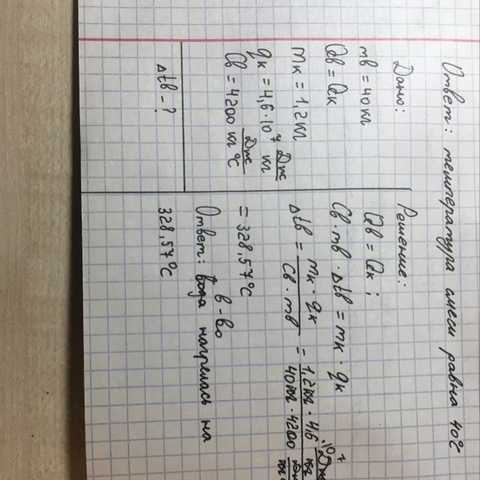 Ответ: температура смеси равна 40°С
Дано:
mв = 40 кг
Qв = Qк
mк = 1,2 кг
qк = 4,6·10⁷ Дж/кг
Cв = 4200 Дж/кг°С
Δtв - ?
Решение:
Qв = Qк;
Cв · mв · Δtв = mк · qк
Δtв = mк · qк / Cв · mв = 1,2 кг · 4,6·10⁷ Дж/кг / 40 кг · 4200
= 328,57°С
в-во
Ответ: вода нагрелась на
328,57°С